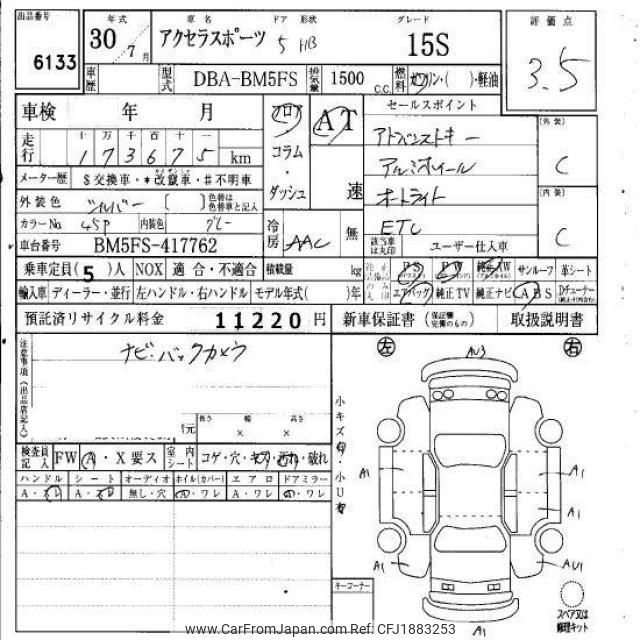 出品番号 年式 車名 ドア 形状 グレード 評価点
6133 30年 7月 アクセラスポーツ 5 HB 15S 3.5
車歴 型式 DBA-BM5FS 排気量 1500 C.C. 燃料 ガソリン・( )・軽油
車検 年 月 フロア AT セールスポイント
走行 十 万 千 百 十 一 コラム アドバンストキー (外装)
173675 km ・ アルミホイール C
メーター歴 $交換車・*改竄車・#不明車 ダッシュ 速 オートライト (内装)
外装色 シルバー [ ] 色替は色替車と記入 ETC C
カラーNo 45P 内装色 グレー 冷房 AAC 無 該当車は丸印 ユーザー仕入車
車台番号 BM5FS-417762
乗車定員(5)人 NOX 適合・不適合 積載量 kg PS PW 純正AW サンルーフ 革シート
輸入車 ディーラー・並行 左ハンドル・右ハンドル モデル年式( )年 エアバッグ 純正TV 純正ナビ ABS Dチューナー
預託済リサイクル料金 11220円 新車保証書 (保証書完備のもの) 取扱説明書
注意事項(出品店記入) ナビ・バックカメラ
左 AU3 右
長さ 幅 高さ
元 × ×
小キズ有・小U有
検査員記入 FW A・X要ス 室内シート コゲ・穴・キズ・汚れ・破れ
ハンドル シート オーディオ ホイル(カバー) エアロ ドアミラー
A・スレ A・スレ 無し・穴 A・ワレ A・ワレ A・ワレ
A1 A1
A1
A1 AU1
キーコーナー
A1
スペア又は修理キット
www.CarFromJapan.com CFJ1883253